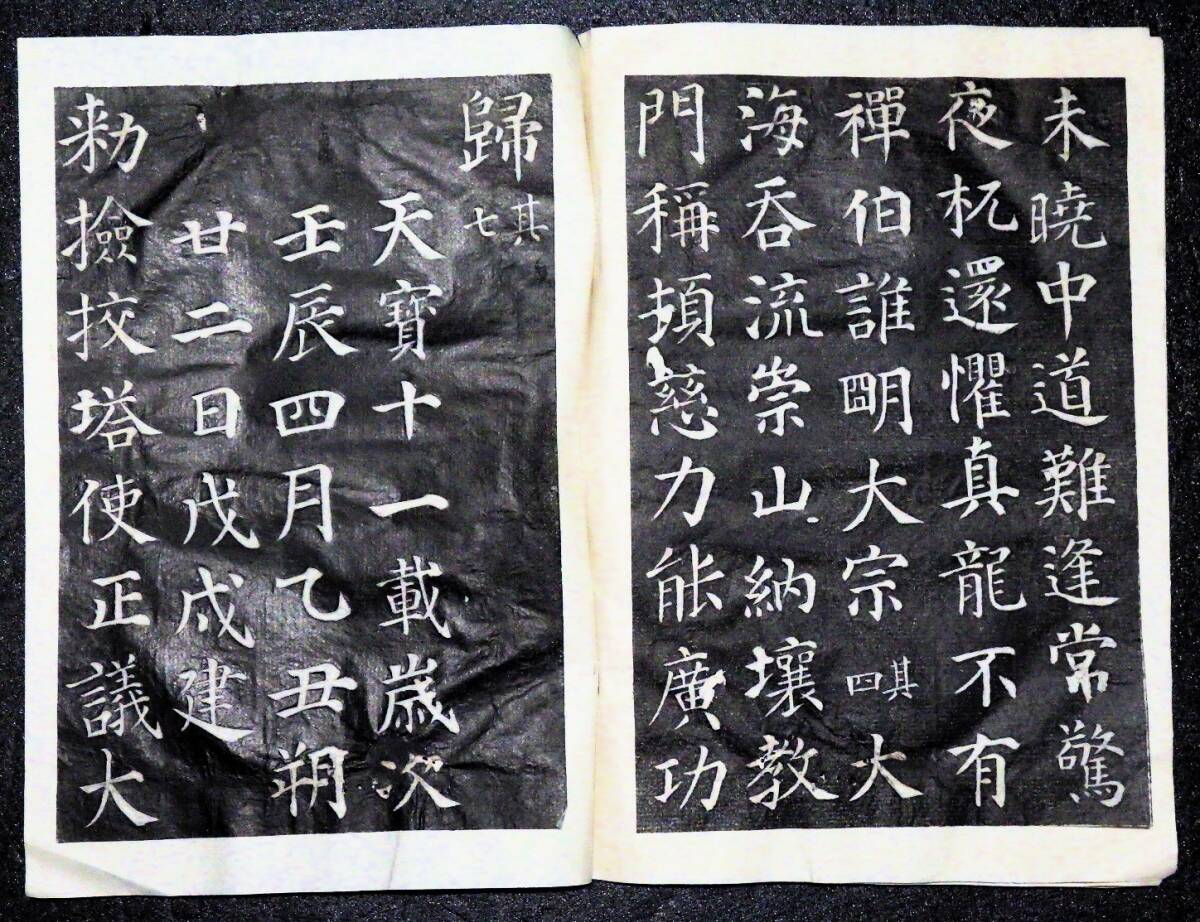 未曉中道難逢常驚
夜杌還懼真龍不有
禪伯誰明大宗其四大
海吞流崇山納壤教
門稱頓慈力能廣功
歸其七
天寶十一載歲次
壬辰四月乙丑朔
廿二日戊戌建
勑撿挍塔使正議大